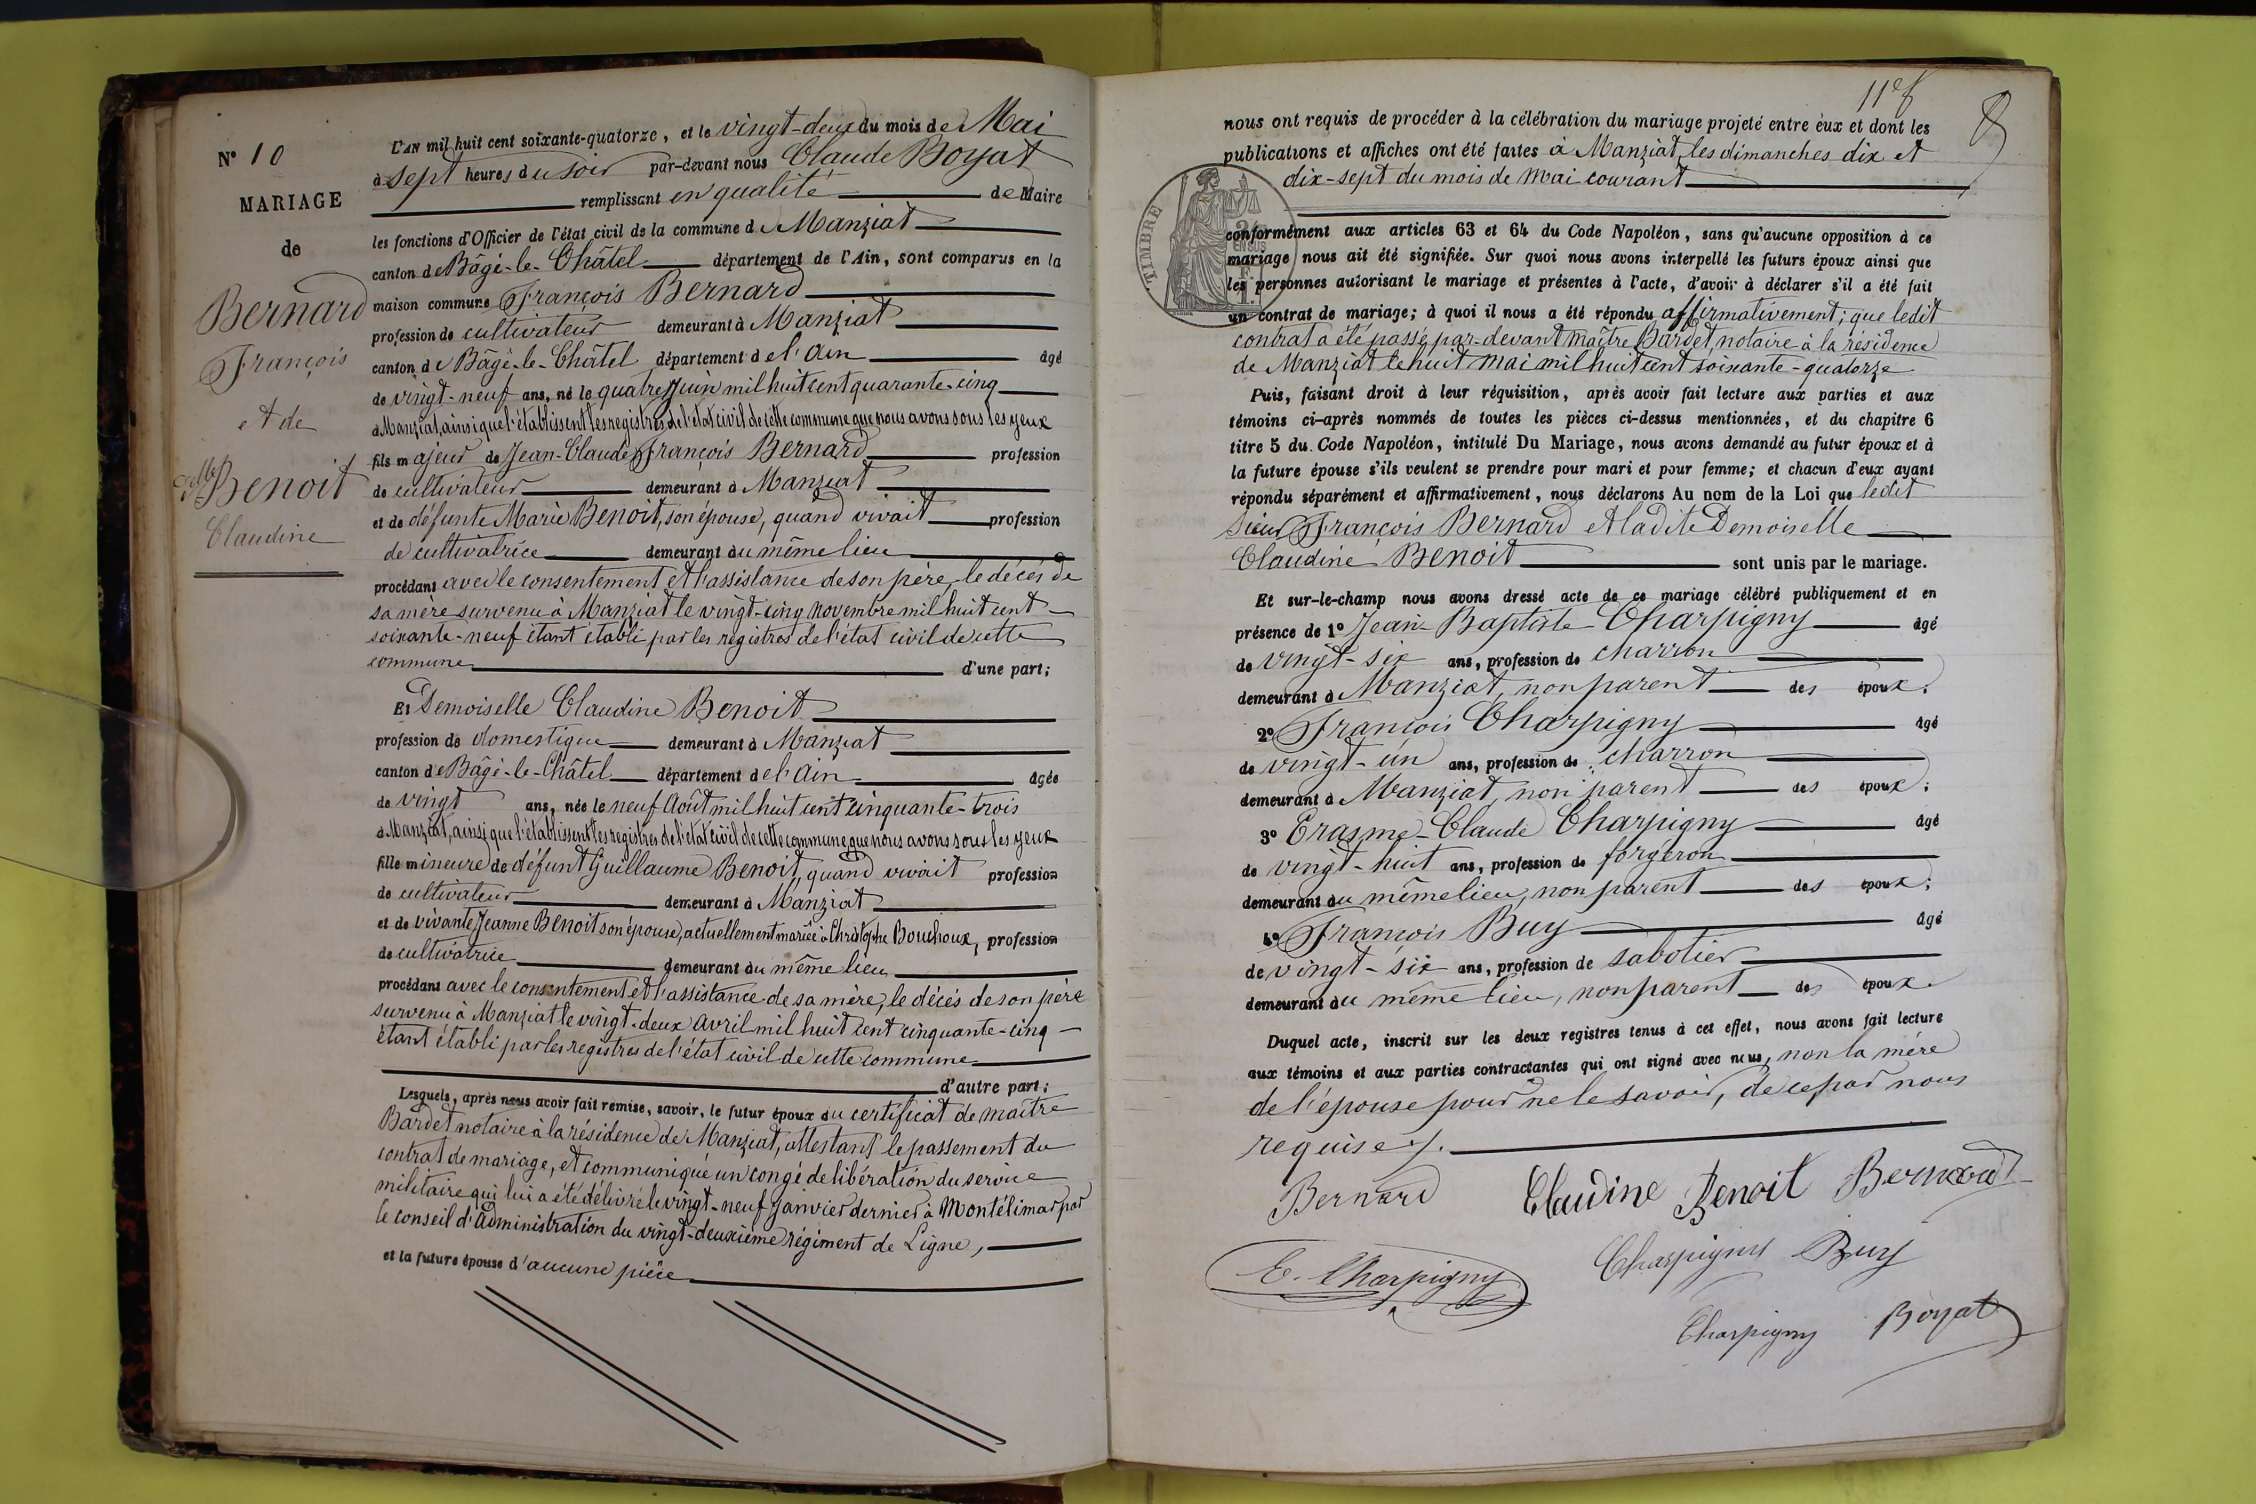 N° 10
MARIAGE
de
Bernard
François
et de
Mlle Benoit
Claudine
L'AN mil huit cent soixante-quatorze, et le vingt-deux du mois de Mai
à sept heures du soir par-devant nous Claude Boyat
remplissant en qualité de Maire
les fonctions d'Officier de l'état civil de la commune de Manziat
canton de Bâgé-le-Châtel département de l'Ain, sont comparus en la
maison commune François Bernard
profession de cultivateur demeurant à Manziat
canton de Bâgé-le-Châtel département de l'Ain âgé
de vingt-neuf ans, né le quatre Juin mil huit cent quarante-cinq
à Manziat, ainsi que l'établissent les registres de l'état civil de cette commune que nous avons sous les yeux
fils majeur de Jean-Claude François Bernard profession
de cultivateur demeurant à Manziat
et de défunte Marie Benoit, son épouse, quand vivait profession
de cultivatrice demeurant au même lieu
procédant avec le consentement et l'assistance de son père, le décès de
sa mère survenu à Manziat le vingt-cinq novembre mil huit cent
soixante-neuf étant établi par les registres de l'état civil de cette
commune d'une part;
Et Demoiselle Claudine Benoit
profession de domestique demeurant à Manziat
canton de Bâgé-le-Châtel département de l'Ain âgée
de vingt ans, née le neuf Août mil huit cent cinquante-trois
à Manziat, ainsi que l'établissent les registres de l'état civil de cette commune que nous avons sous les yeux
fille mineure de défunt Guillaume Benoit, quand vivait profession
de cultivateur demeurant à Manziat
et de vivante Jeanne Benoit son épouse, actuellement mariée à Christophe Bouchoux, profession
de cultivatrice demeurant au même lieu
procédant avec le consentement et l'assistance de sa mère, le décès de son père
survenu à Manziat le vingt-deux Avril mil huit cent cinquante-cinq
étant établi par les registres de l'état civil de cette commune
d'autre part;
Lesquels, après nous avoir fait remise, savoir, le futur époux du certificat de maître
Bardet notaire à la résidence de Manziat, attestant le passement du
contrat de mariage, et communiqué un congé de libération du service
militaire qui lui a été délivré le vingt-neuf janvier dernier à Montélimar par
le conseil d'Administration du vingt-deuxième régiment de Ligne,
et la future épouse d'aucune pièce
11e f
nous ont requis de procéder à la célébration du mariage projeté entre eux et dont les
publications et affiches ont été faites à Manziat, les dimanches dix et
dix-sept du mois de Mai courant
TIMBRE
conformément aux articles 63 et 64 du Code Napoléon, sans qu'aucune opposition à ce
mariage nous ait été signifiée. Sur quoi nous avons interpellé les futurs époux ainsi que
les personnes autorisant le mariage et présentes à l'acte, d'avoir à déclarer s'il a été fait
un contrat de mariage; à quoi il nous a été répondu affirmativement; que ledit
contrat a été passé par-devant maître Bardet, notaire à la résidence
de Manziat le huit mai mil huit cent soixante-quatorze
Puis, faisant droit à leur réquisition, après avoir fait lecture aux parties et aux
témoins ci-après nommés de toutes les pièces ci-dessus mentionnées, et du chapitre 6
titre 5 du Code Napoléon, intitulé Du Mariage, nous avons demandé au futur époux et à
la future épouse s'ils veulent se prendre pour mari et pour femme; et chacun d'eux ayant
répondu séparément et affirmativement, nous déclarons Au nom de la Loi que ledit
Sieur François Bernard et ladite Demoiselle
Claudine Benoit sont unis par le mariage.
Et sur-le-champ nous avons dressé acte de ce mariage célébré publiquement et en
présence de 1° Jean-Baptiste Charpigny âgé
de vingt-six ans, profession de charron
demeurant à Manziat, non parent des époux;
2° François Charpigny âgé
de vingt-un ans, profession de charron
demeurant à Manziat, non parent des époux;
3° Erasme-Claude Charpigny âgé
de vingt-huit ans, profession de forgeron
demeurant au même lieu, non parent des époux;
4° François Buy âgé
de vingt-six ans, profession de sabotier
demeurant au même lieu, non parent des époux.
Duquel acte, inscrit sur les deux registres tenus à cet effet, nous avons fait lecture
aux témoins et aux parties contractantes qui ont signé avec nous, non la mère
de l'épouse pour ne le savoir, de ce par nous
requise ./.
Bernard Claudine Benoit Bernard
E. Charpigny Charpigny Buy
Charpigny Boyat